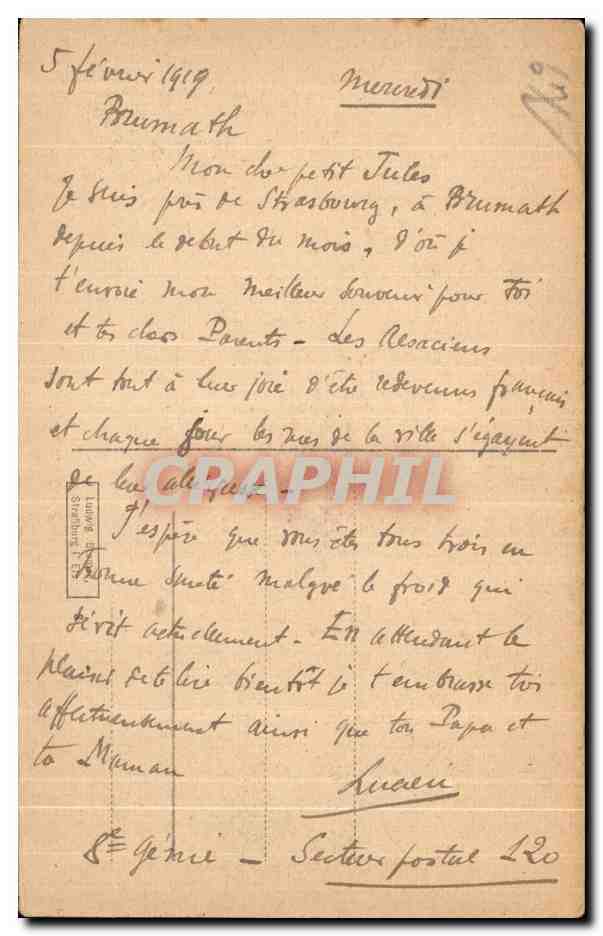 5 février 1919. Mercredi
Brumath
Mon cher petit Jules
Je suis près de Strasbourg, à Brumath
depuis le debut du mois, d'où je
t'envoie mon meilleur souvenir pour Toi
et tes chers Parents - Les Alsaciens
sont tout à leur joie d'être redevenus français
et chaque jour les rues de la ville s'égayent
de leur allégresse -
CRAPHIL
J'espère que vous êtes tous trois en
bonne santé malgré le froid qui
sévit actuellement - En attendant le
plaisir de te lire bientôt je t'embrasse très
affectueusement ainsi que ton Papa et
ta Maman
Lucien
8e Génie - Secteur postal 120
Ludwig
Straßburg i. Els.